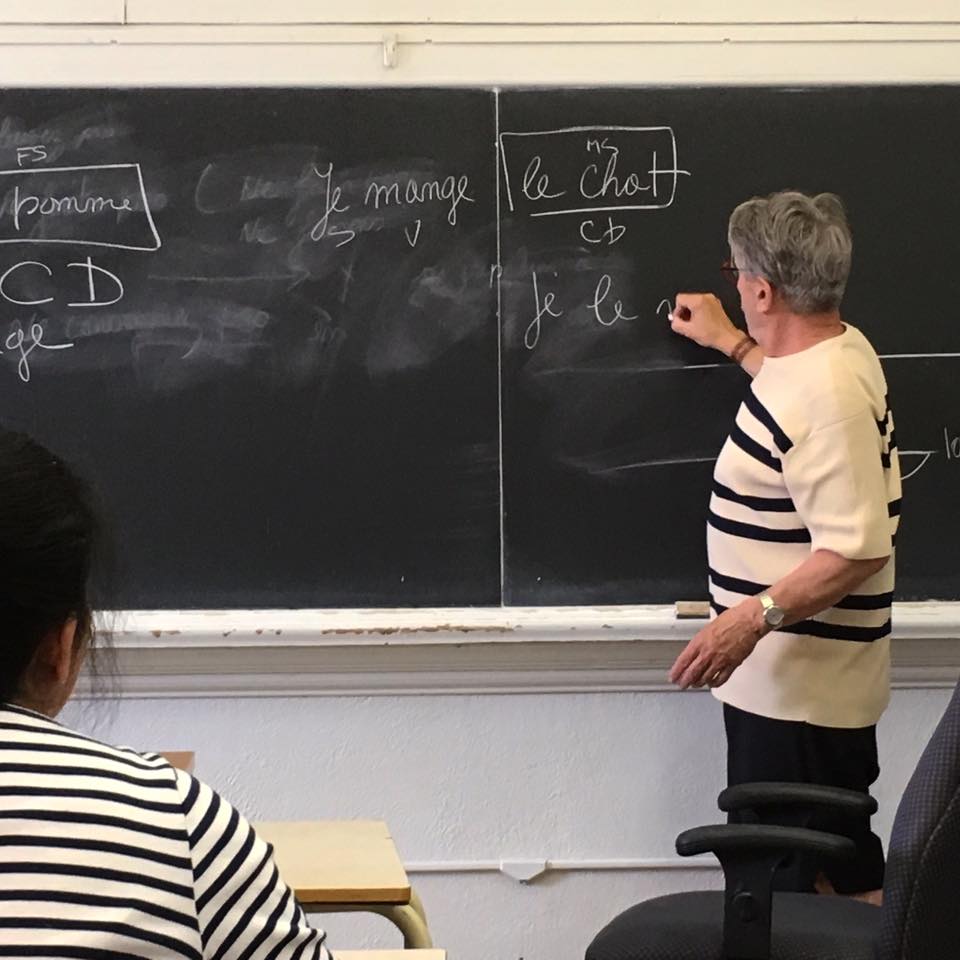 FS
pomme
CD
ge
Je mange
S V
MS
le chat
CD
Je le